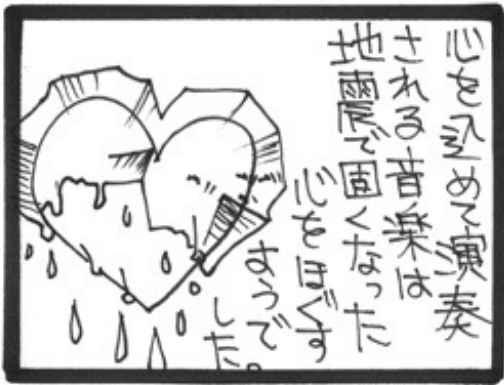 心を込めて演奏
される音楽は
地震で固くなった
心をほぐす
ようで
した。